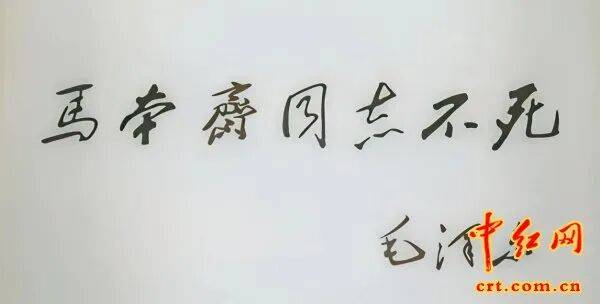 馬本齋同志不死
毛泽东
中红网
crt.com.cn